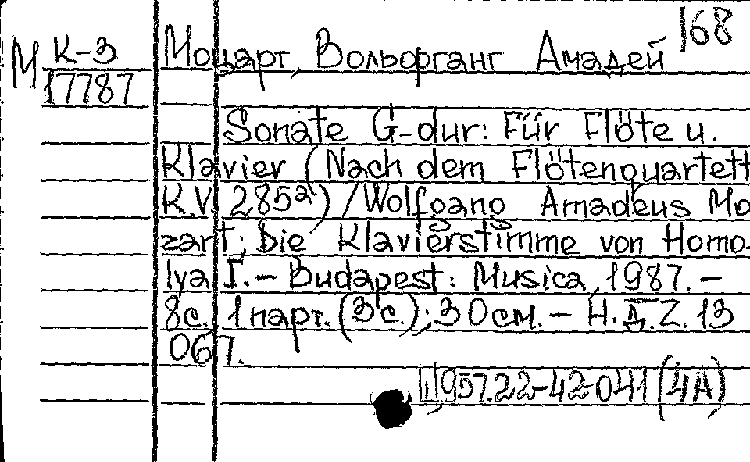 168
М К-3 Моцарт, Вольфганг Амадей
17787
Sonate G-dur: Für Flöte u.
Klavier (Nach dem Flötenquartett
K.V. 285a) / Wolfgang Amadeus Mo
zart; Die Klavierstimme von Homo
lya I. – Budapest: Musica, 1987. –
8с. 1 парт. (3с.); 30см. – Н.Д.Z. 13
067.
957.22-42-041 (4А)